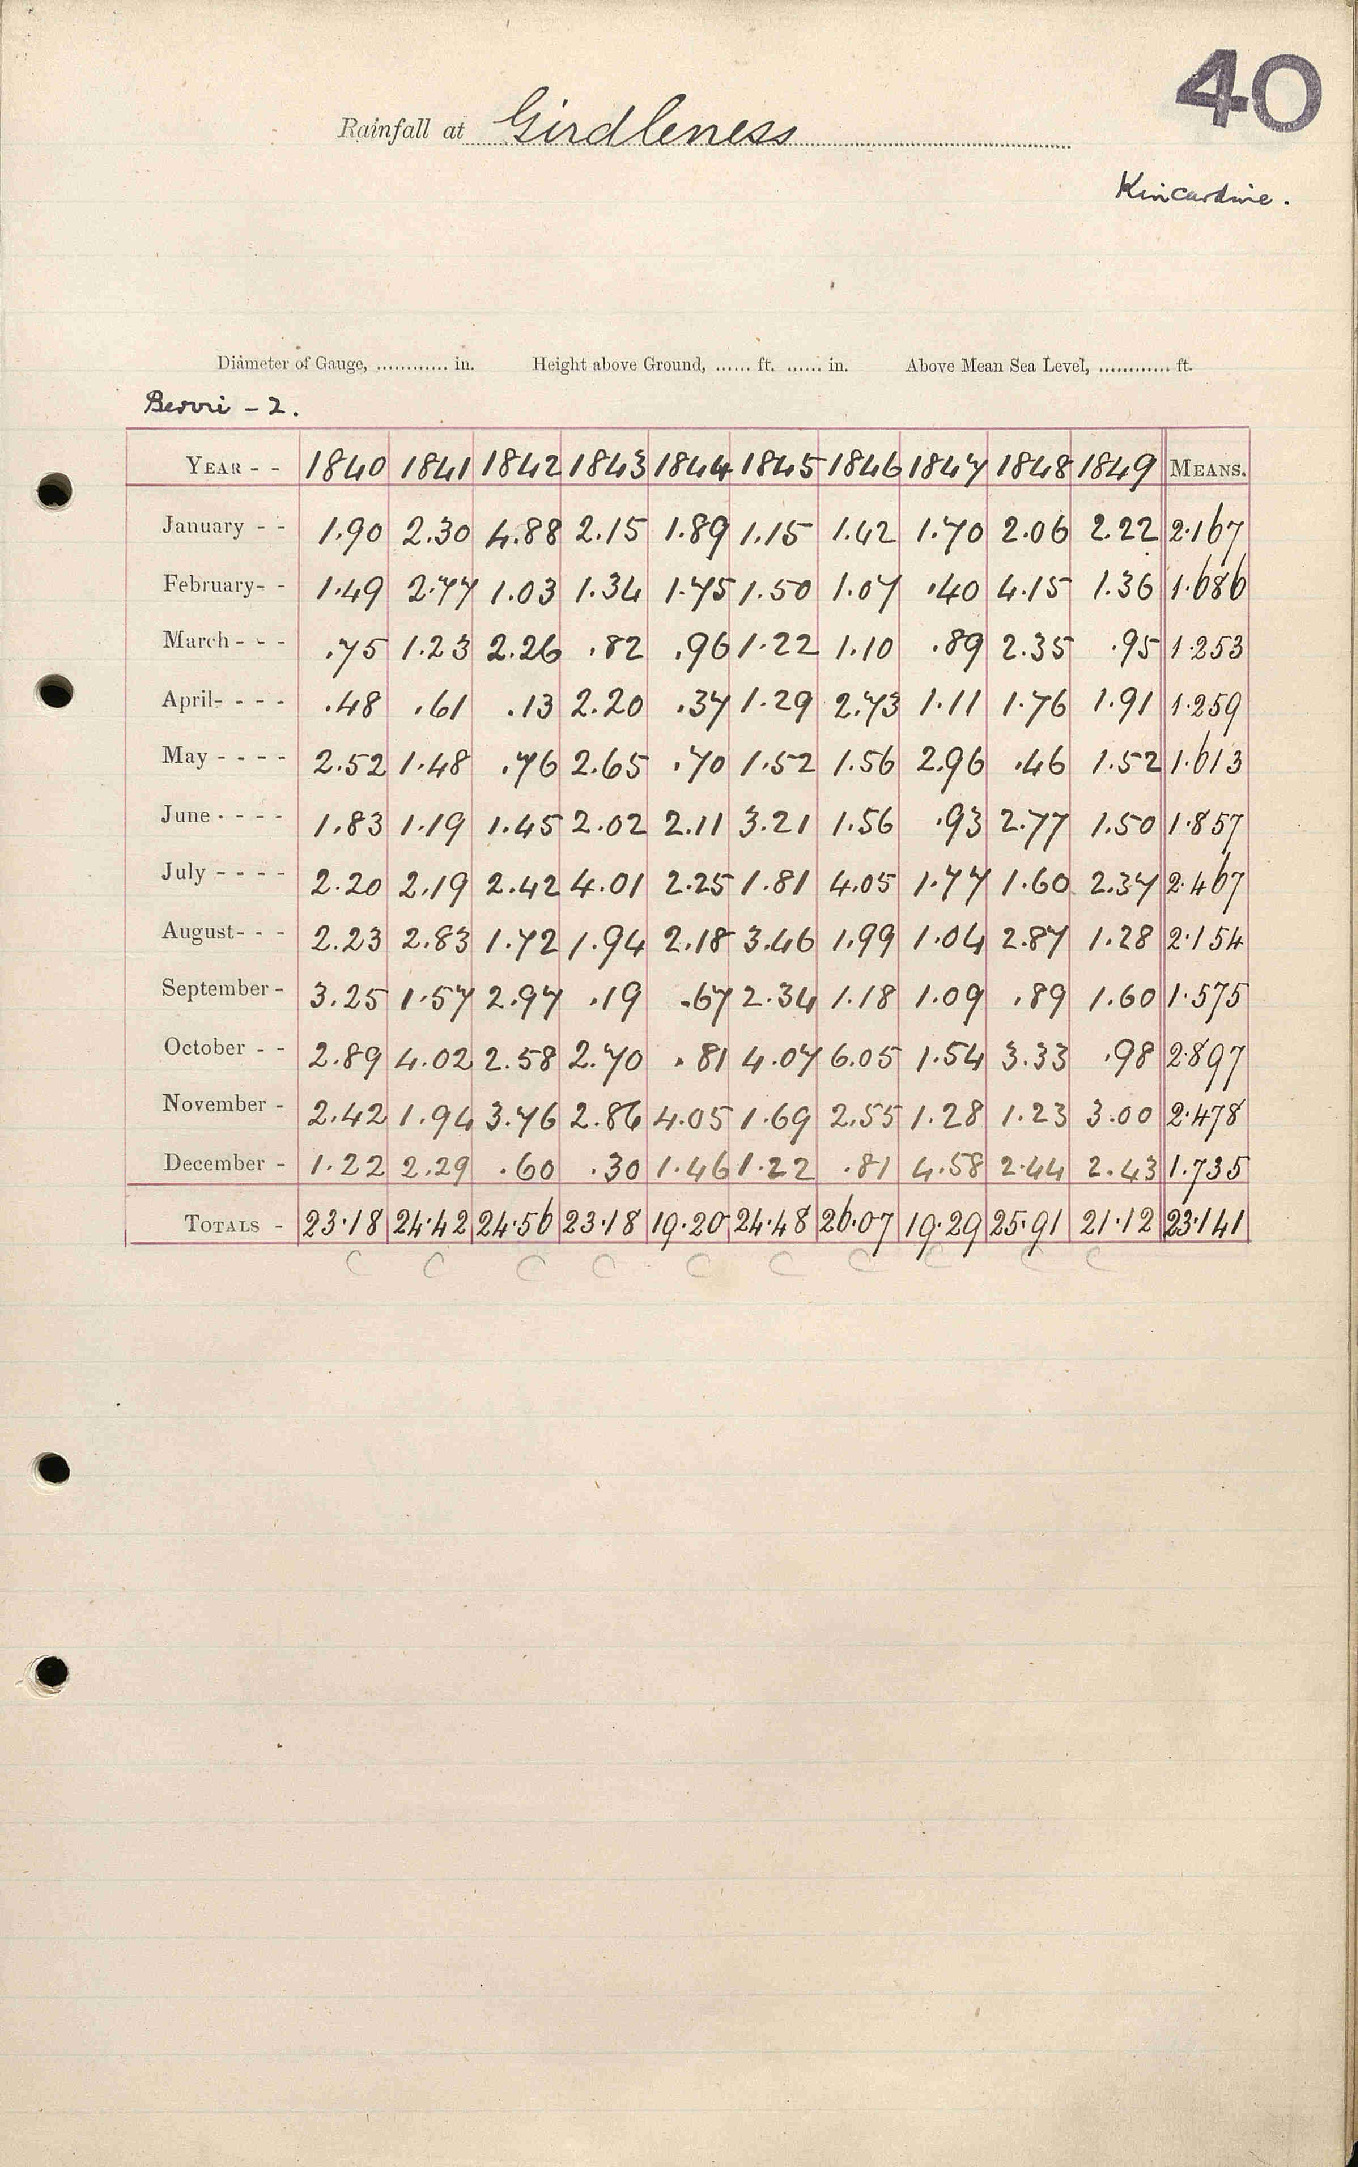 40
Rainfall at Girdleness
Kincardine.
Diameter of Gauge, ............ in. Height above Ground, ...... ft. ...... in. Above Mean Sea Level, ............ ft.
Bervie - 2.
YEAR - - 1840 1841 1842 1843 1844 1845 1846 1847 1848 1849 MEANS.
January - - 1.90 2.30 4.88 2.15 1.89 1.15 1.42 1.70 2.06 2.22 2.167
February - - 1.49 2.77 1.03 1.34 1.75 1.50 1.07 .40 4.15 1.36 1.686
March - - - .75 1.23 2.26 .82 .96 1.22 1.10 .89 2.35 .95 1.253
April - - - - .48 .61 .13 2.20 .37 1.29 2.73 1.11 1.76 1.91 1.259
May - - - - 2.52 1.48 .76 2.65 .70 1.52 1.56 2.96 .46 1.52 1.613
June - - - - 1.83 1.19 1.45 2.02 2.11 3.21 1.56 .93 2.77 1.50 1.857
July - - - - 2.20 2.19 2.42 4.01 2.25 1.81 4.05 1.77 1.60 2.37 2.467
August - - - 2.23 2.83 1.72 1.94 2.18 3.46 1.99 1.04 2.87 1.28 2.154
September - 3.25 1.57 2.97 .19 .67 2.34 1.18 1.09 .89 1.60 1.575
October - - 2.89 4.02 2.58 2.70 .81 4.07 6.05 1.54 3.33 .98 2.897
November - 2.42 1.94 3.76 2.86 4.05 1.69 2.55 1.28 1.23 3.00 2.478
December - 1.22 2.29 .60 .30 1.46 1.22 .81 4.58 2.44 2.43 1.735
TOTALS - 23.18 24.42 24.56 23.18 19.20 24.48 26.07 19.29 25.91 21.12 23.141
C C C C C C C C C C